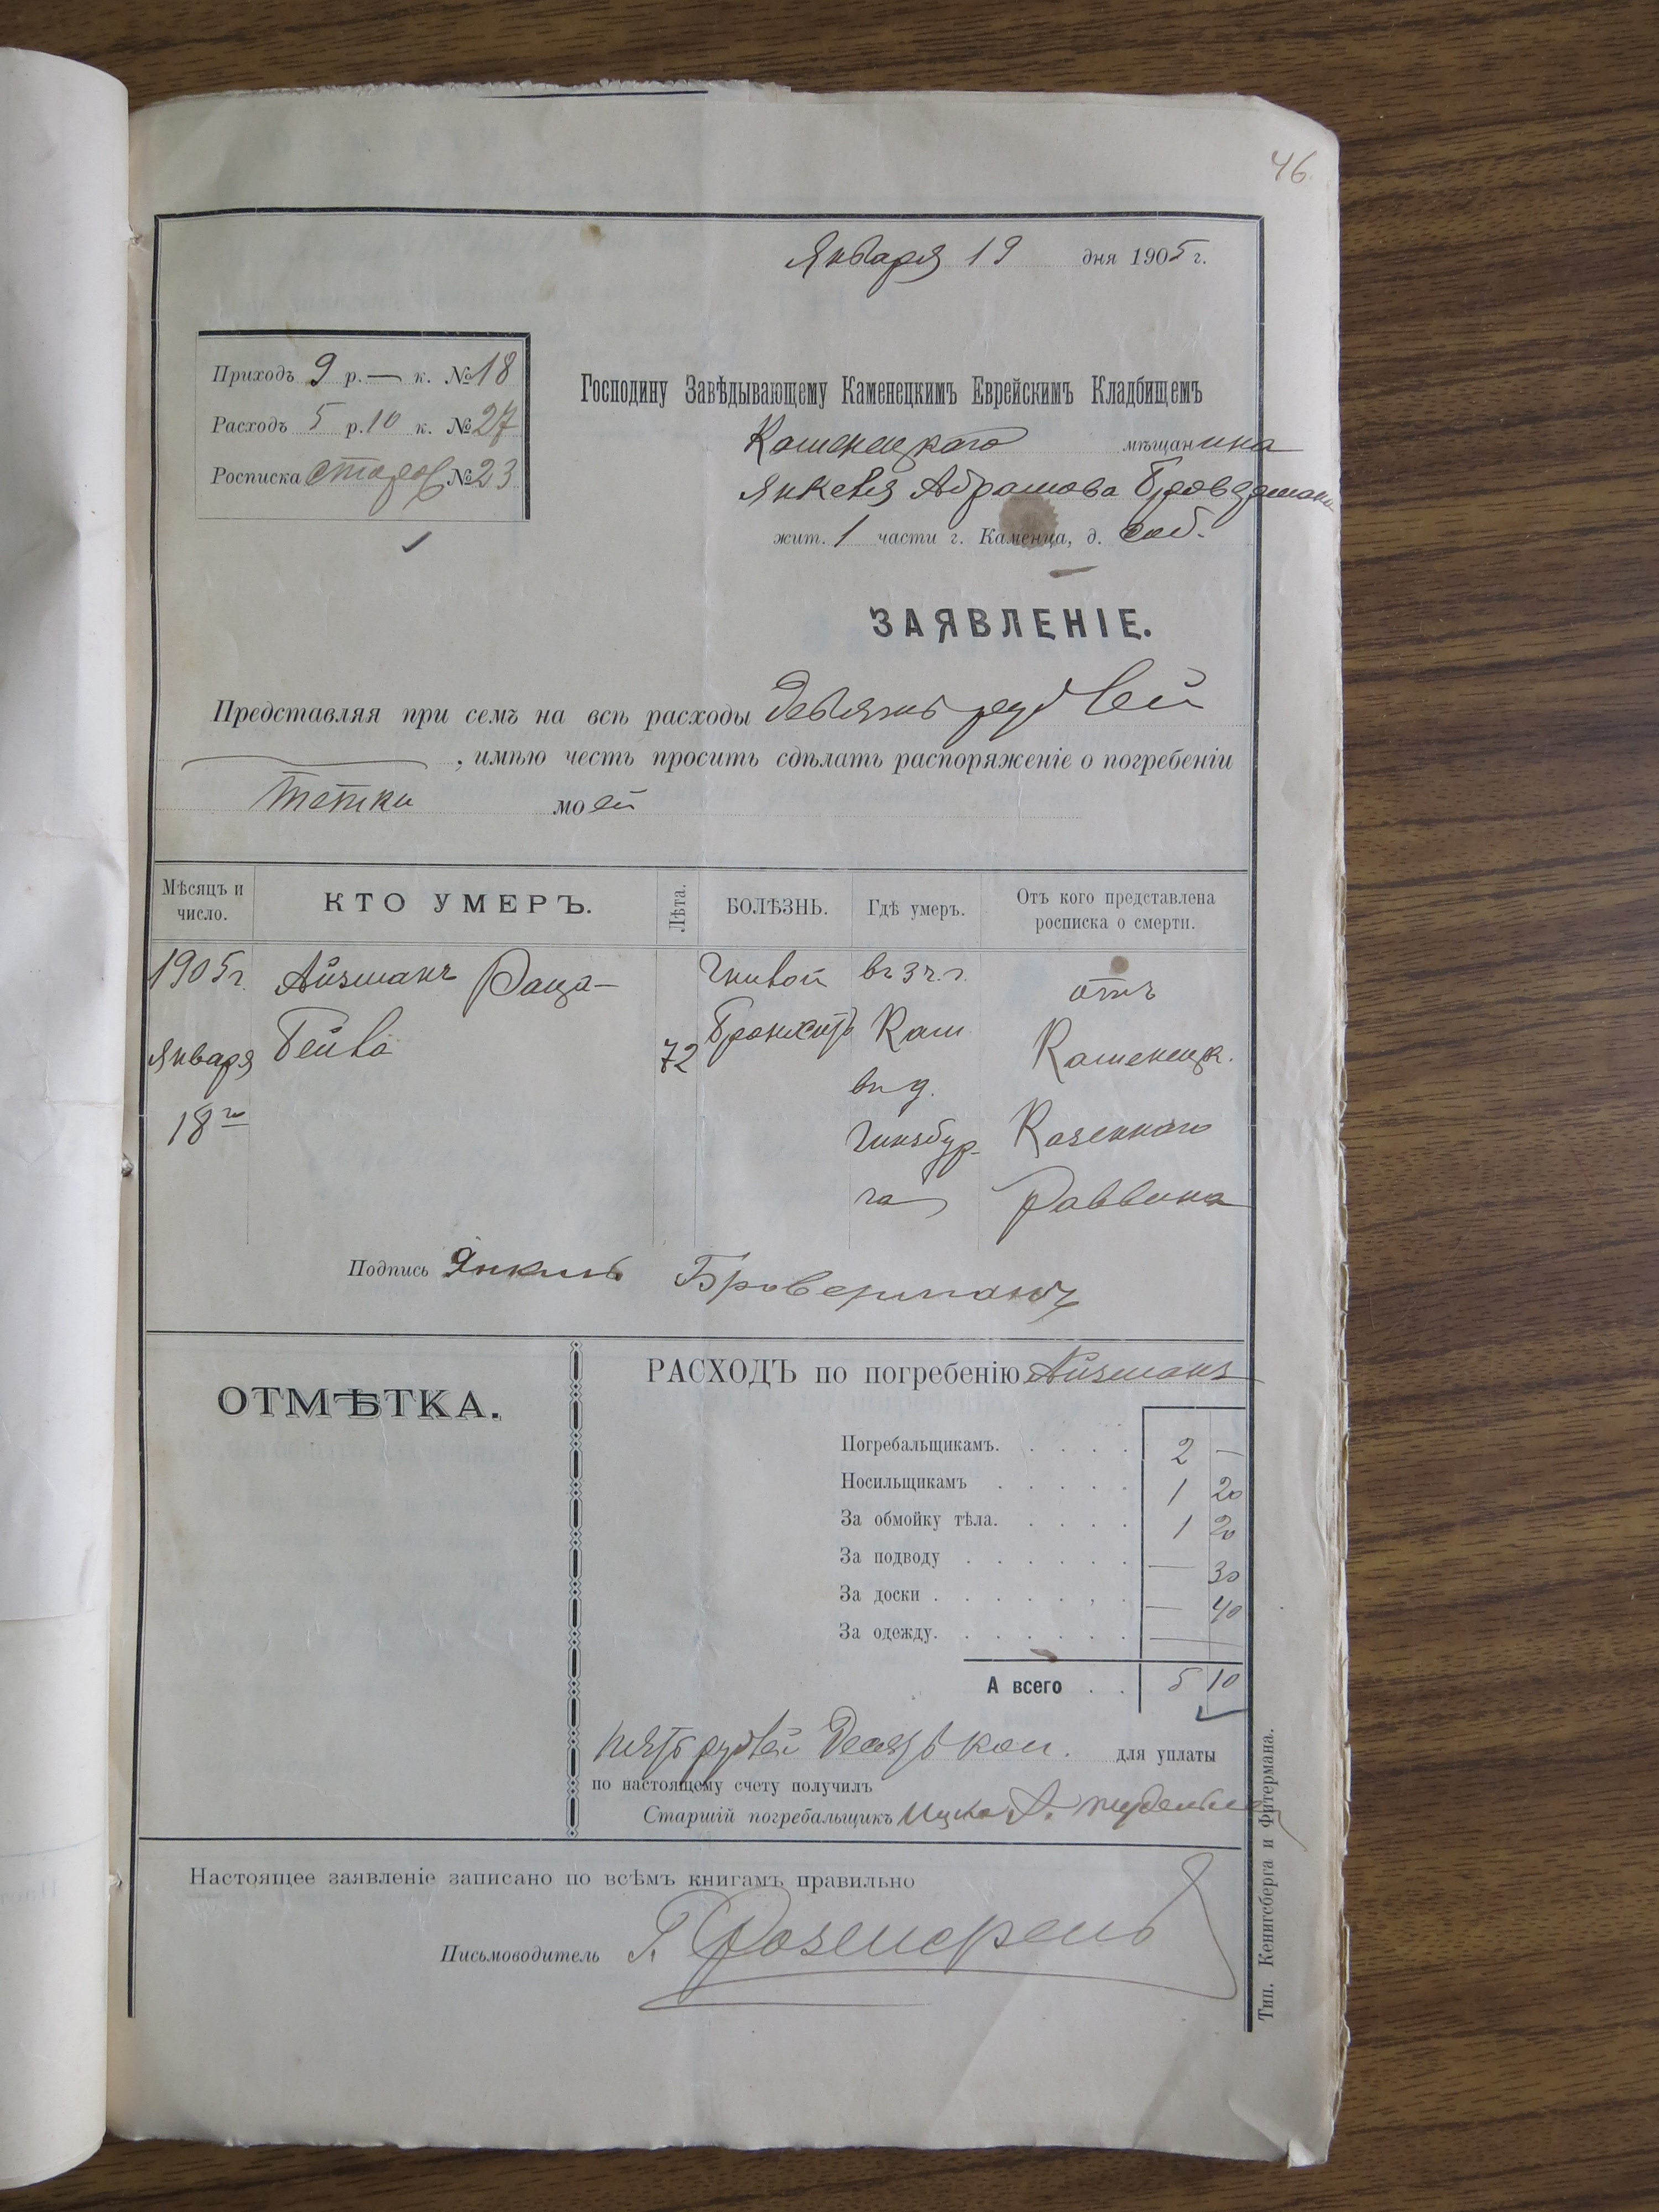 46
Января 19 дня 1905 г.
Приходъ 9 р. — к. № 18
Расходъ 5 р. 10 к. № 27
Росписка № 23
Господину Завѣдывающему Каменецкимъ Еврейскимъ Кладбищемъ
Каменецкаго мѣщанина
Янкеля Абрамова Бровермана
жит. 1 части г. Каменца, д. соб.
ЗАЯВЛЕНІЕ.
Представляя при семъ на всѣ расходы Девять рублей
, имѣю честь просить сдѣлать распоряженіе о погребеніи
тетки моей
Мѣсяцъ и число. КТО УМЕРЪ. Лѣта. БОЛѢЗНЬ. Гдѣ умеръ. Отъ кого представлена росписка о смерти.
1905 г. Айзманъ Раца- Гнивой въ 3 ч. г. отъ
Января Бейла 72 Бронхитъ Кам Каменецк.
18го въ д. Казеннаго
Гинзбур- Раввина
га
Подпись Янкель Броверманъ
ОТМѢТКА.
РАСХОДЪ по погребенію Айзманъ
Погребальщикамъ. 2 —
Носильщикамъ 1 20
За обмойку тѣла. 1 20
За подводу — 30
За доски — 40
За одежду. —
А всего 5 10
Пять рублей Десять коп. для уплаты
по настоящему счету получилъ
Старшій погребальщикъ Ицко А.
Настоящее заявленіе записано по всѣмъ книгамъ правильно
Письмоводитель Г.
Тип. Кенигсберга и Фитермана.